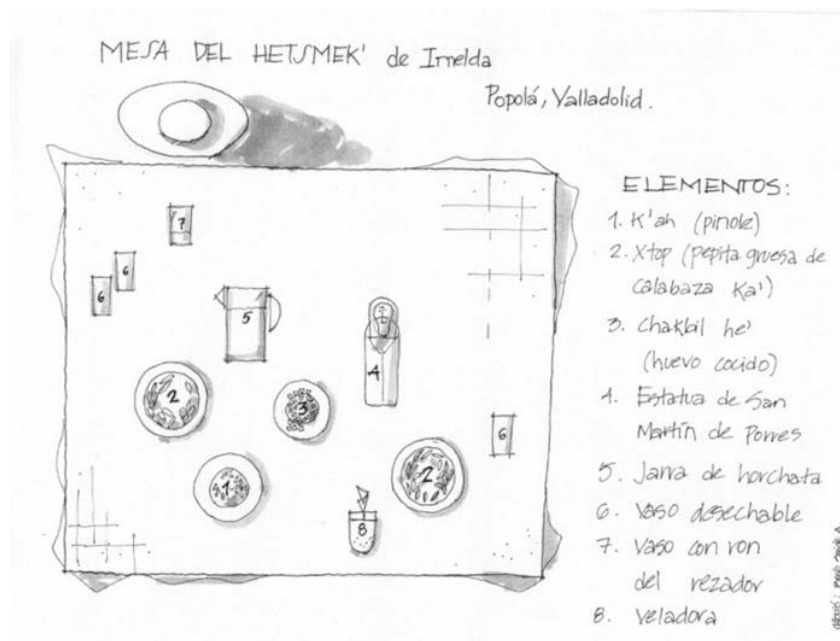 MESA DEL HETSMEK' de Imelda
Popolá, Valladolid.
ELEMENTOS:
1. K'ah (pinole)
2. Xtop (pepita gruesa de
calabaza Ka')
3. Chakbil he'
(huevo cocido)
4. Estatua de San
Martín de Porres
5. Jarra de horchata
6. Vaso desechable
7. Vaso con ron
del rezador
8. Veladora
7
6
6
5
4
2
3
6
1
2
8